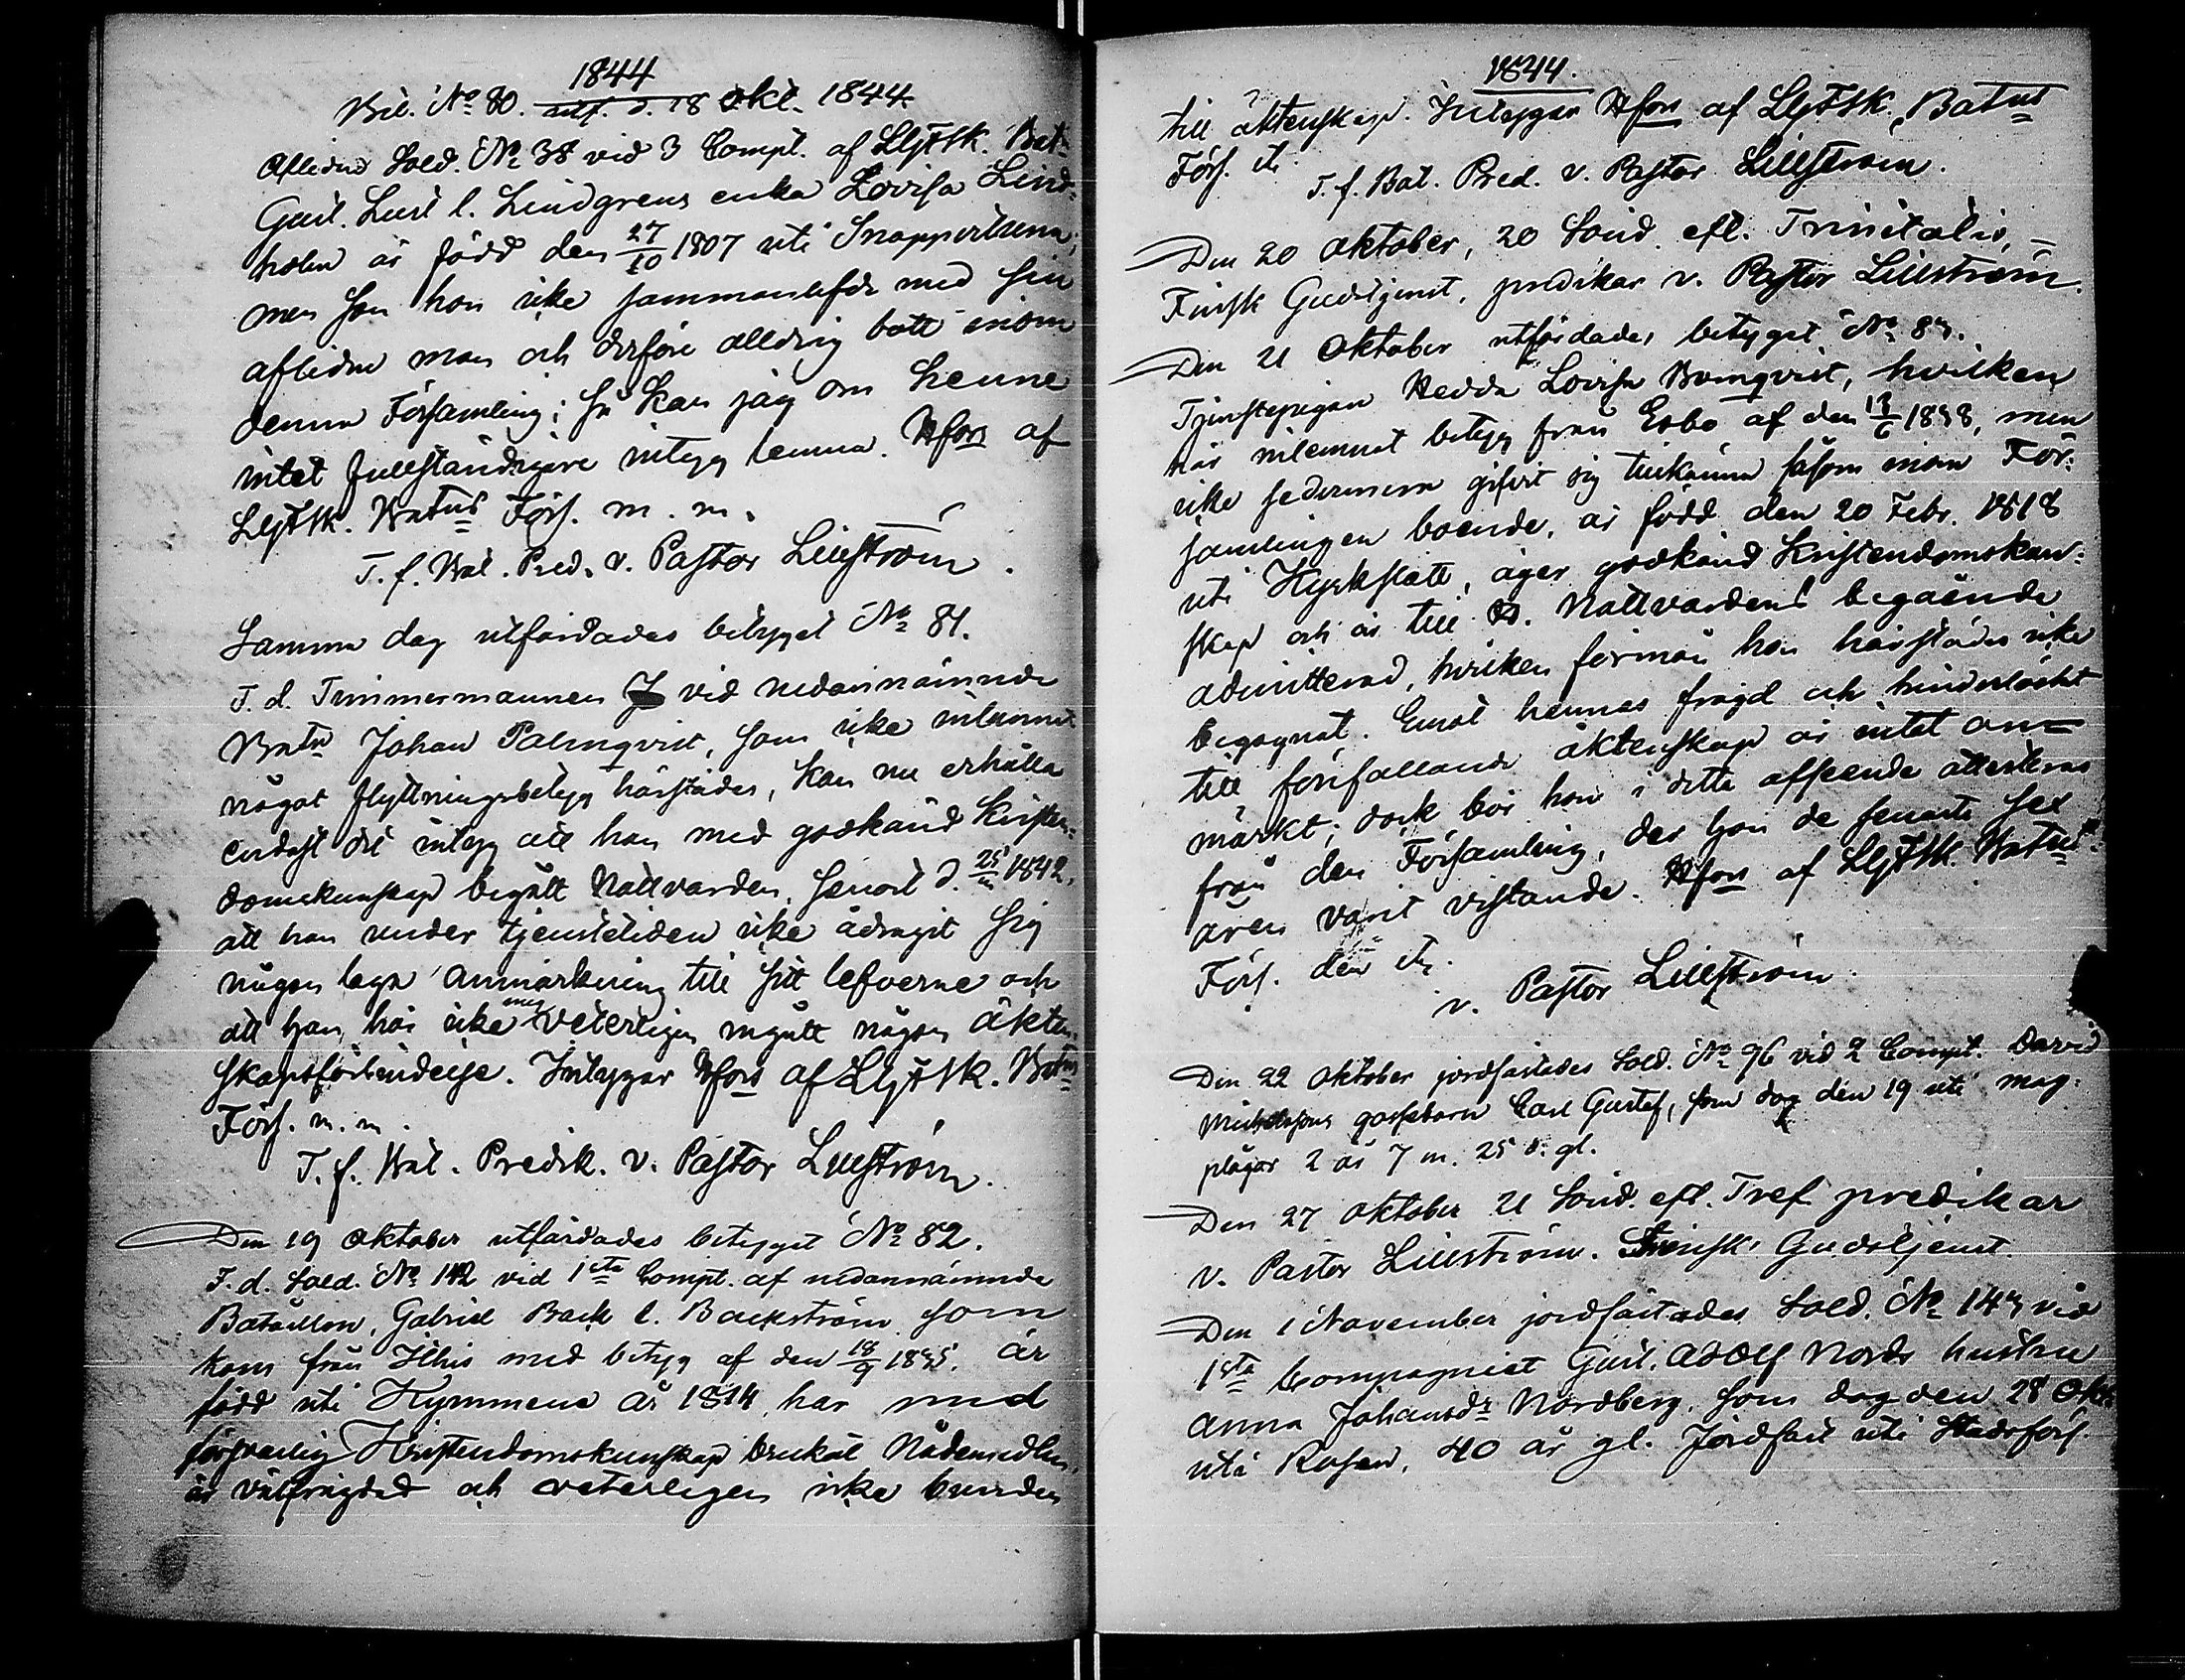 1844
Bil. No 80. utf. d. 18 Okt. 1844
Aflidne Sold. No 38 vid 3 Compt. af LlgFSk. Bat:
Gust. Lust l. Lindgrens enka Lovisa Lind-
holm är född den 27/10 1807 uti Snappertuna,
men som hon icke sammanlefde med sin
aflidne man och derföre alldrig bott inom
denna Församling; så kan jag om henne
intet fullständigare intyg lemna. Hfors af
LlgFSk. Batns Förs. m. m.
T. f. Bat. Pred. v. Pastor Lillström.
Samma dag utfärdades betyget No 81.
F. d. Timmermannen vid nedannämnde
Batn Johan Palmqvist, som icke inlemnat
något flyttningsbetyg härstädes, kan nu erhålla
endast det intyg att han med godkänd Kristen-
domskunskap begått Nattvarden, senast d. 25 1842,
att han under tjenstetiden icke ådragit sig
någon laga anmärkning till sitt lefverne och
att han har icke mig veterligen ingått någon äkten
skapsförbindelse. Intygar Hfors af LlgFSk. Batns
Förs. m. m.
T. f. Bat. Predik. v. Pastor Lillström.
Den 19 Oktober utfärdades betyget No 82.
F. d. Sold. No 142 vid 1sta Compt. af nedannämnde
Bataillon, Gabriel Back l. Backström som
kom från med betyg af den 18/9 är
född uti Kymmene år 1814, har med
försvarlig Kristendomskunskap brukat Nådemedlen,
är välfrägdad och veterligen icke bunden
1844.
till äktenskap. Intygar Hfors af LlgFSk. Batns
Förs. etc
T. f. Bat. Pred. v. Pastor Lillström.
Den 20 Oktober, 20 Sönd. eft. Trinitatis, –
Finsk Gudstjenst, predikar v. Pastor Lillström.
Den 21 Oktober utfärdades betyget No 83.
Tjenstepigan Hedda Lovisa Bomqvist, hvilken
här inlemnat betyg från Esbo af den men
icke sedermera gifvit sig tillkänna såsom inom För-
samlingen boende, är född den 20 Febr. 1818
uti Kyrkslätt, äger godkänd Kristendomskun-
skap och är till H. Nattvardens begående
admitterad, hvilken förmån hon härstädes icke
begagnat. Emot hennes frägd och hinderlöshet
till förefallande äktenskap är intet an-
märkt; dock bör hon i detta afseende attesteras
från den Församling, der hon de senaste sex
åren varit vistande. Hfors af LlgFSk. Batns
Förs. den etc.
v. Pastor Lillström
Den 22 Oktober jordfästades Sold. No 96 vid 2 Compt. David
Michelssons gossebarn Carl Gustaf, som dog den 19 uti mag-
plågor 2 år 7 m. 25 d. gl.
Den 27 Oktober 21 Sönd. eft. Tref. predikar
v. Pastor Lillström. Gudstjenst.
Den 1 November jordfästades Sold. No 143 vid
1sta Compagniet Gust. Adolf Nords hustru
Anna Johansdr Nordberg, som dog den 28 Okt.
uti Rosen, 40 år gl. Jordfäst uti Stadsförs.